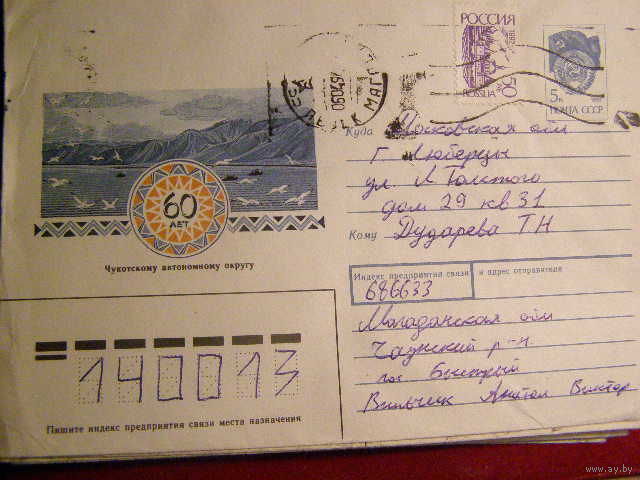 РОССИЯ
ROSSIJA
50
1992
5к
ПОЧТА СССР
060494
60
ЛЕТ
Чукотскому автономному округу
Куда Московская обл
г. Люберцы
ул. Л Толстого
дом 29 кв 31
Кому Дударева Т Н
Индекс предприятия связи и адрес отправителя
686633
Магаданская обл
Чаунский р-н
пос Быстрый
Вильчик Анатол Виктор
140013
Пишите индекс предприятия связи места назначения
www.ay.by